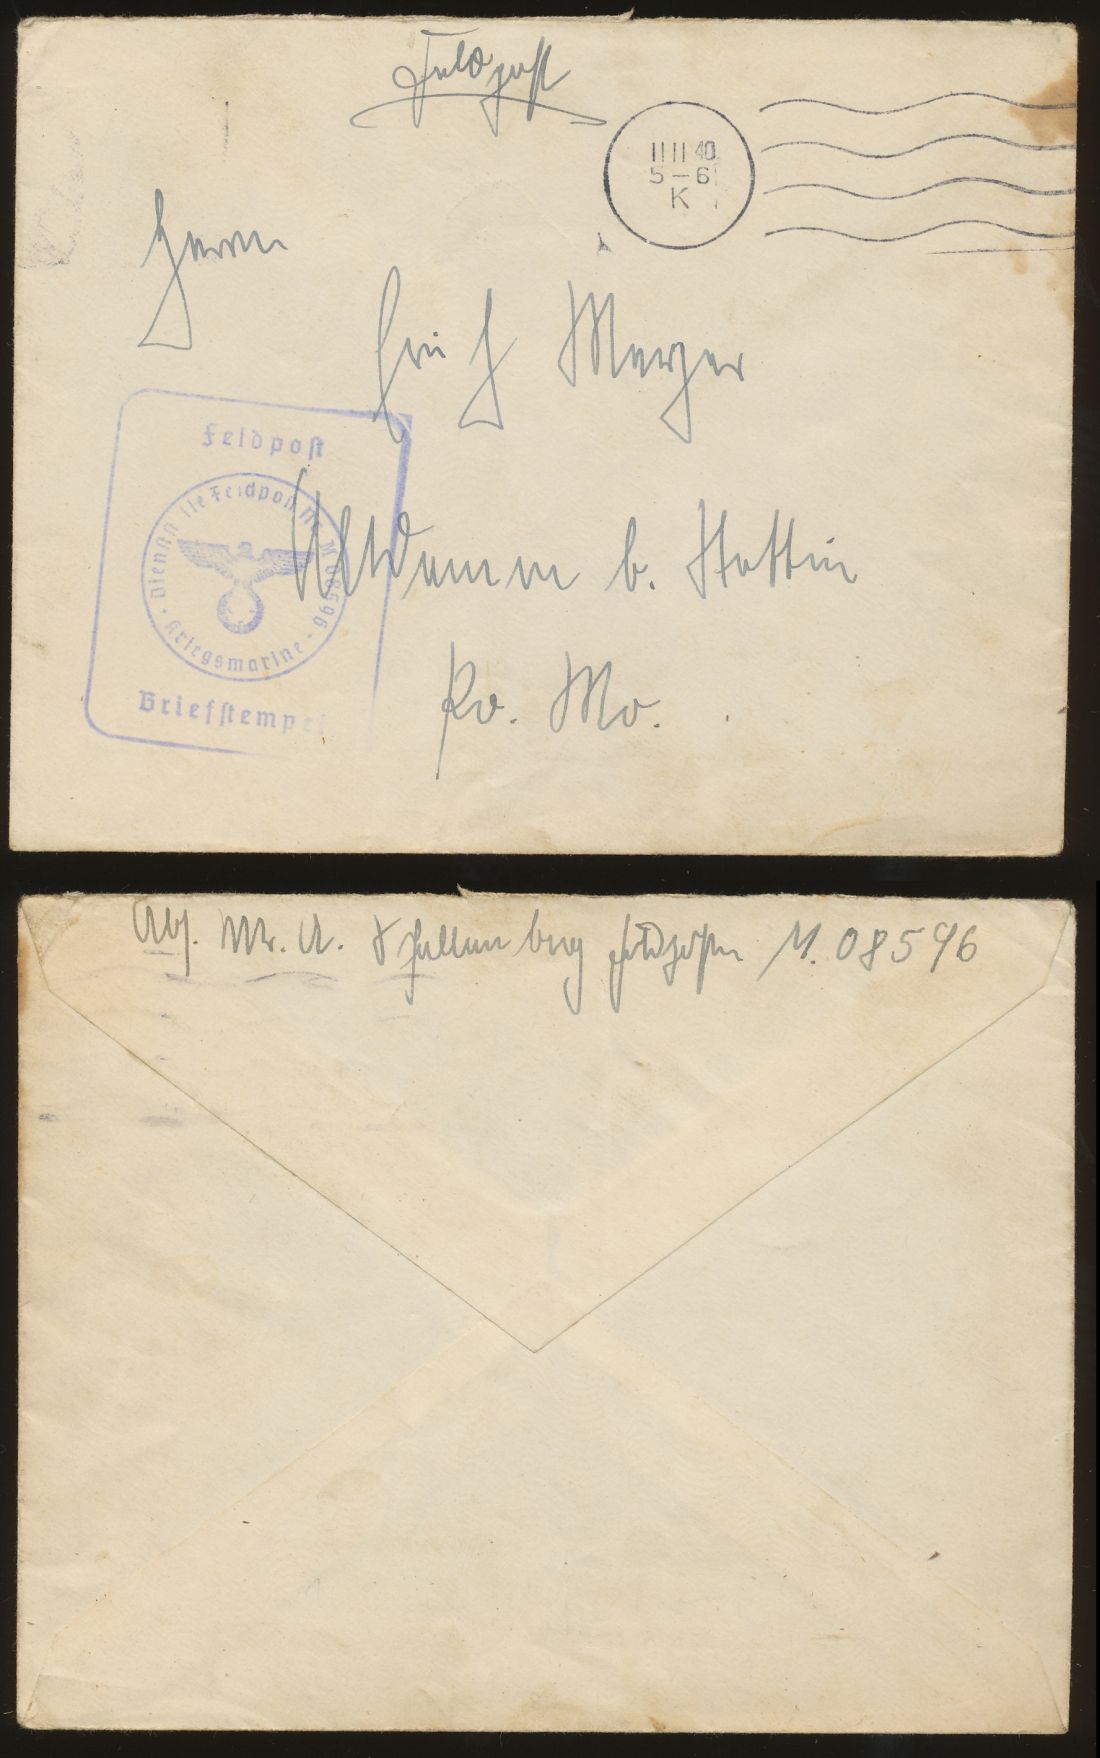 Feldpost
11 11 40
5 — 6
K
Herrn
Erich Meyer
Feldpost
Dienststelle Feldpost Nr. M 08596
Kriegsmarine
Briefstempel
Altdamm b. Stettin
Abs. A. Schallenberg Feldpostnr M. 08596